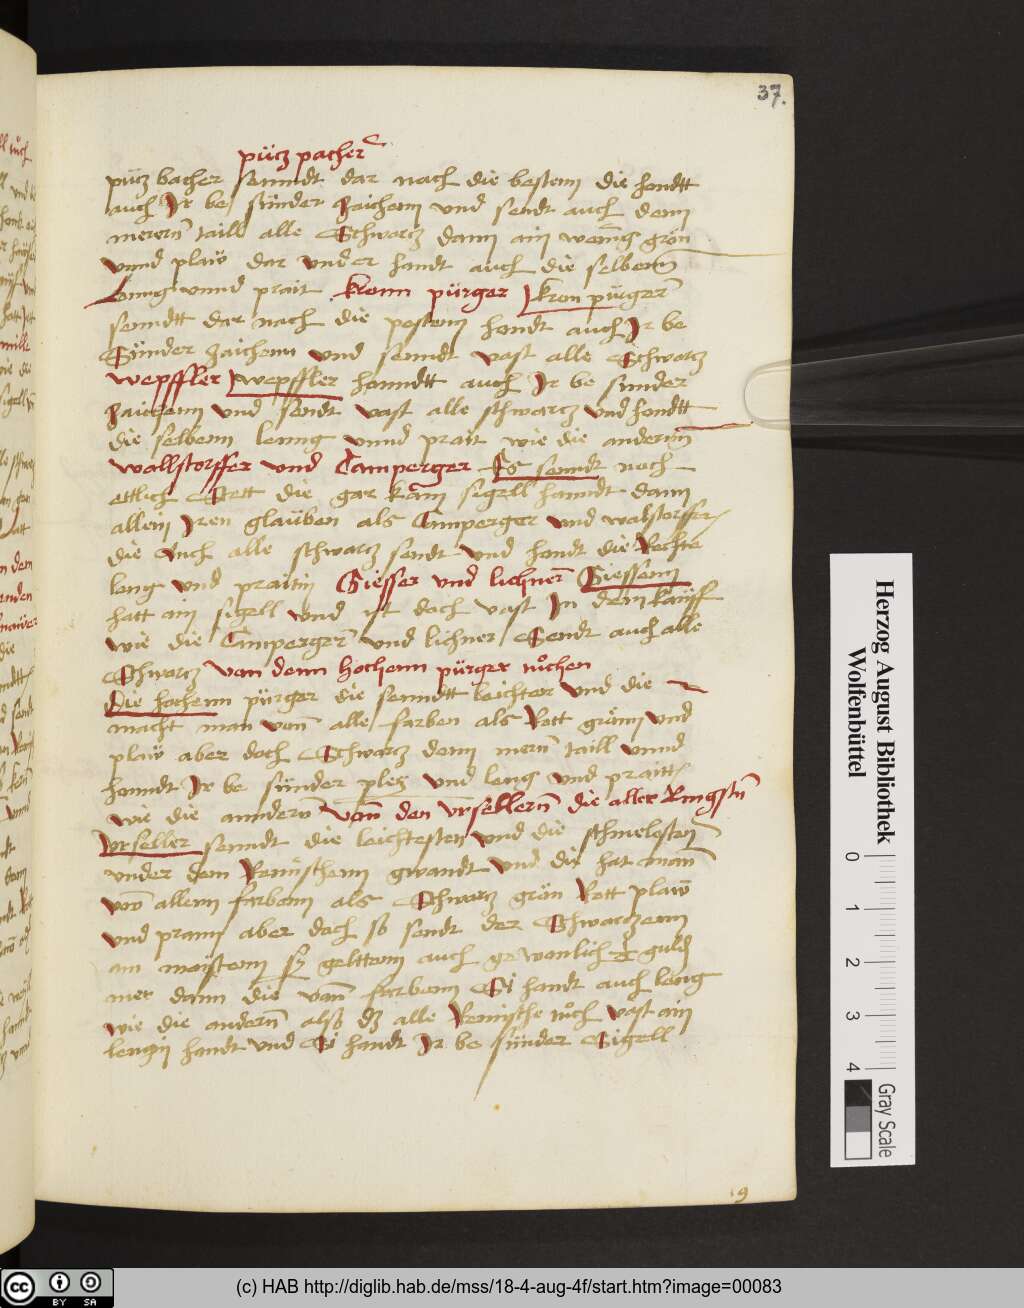 37.
pücz pacher
pücz bacher senndt dar nach die bestenn die handtt
auch Ir be sünder zaichenn vnd sendt auch denn
merern taill alle Schwarcz dann ain wenng grön
vnnd plaw dar vnder handt auch die selbenn
Lenng vnnd prait kronn pürger kron pürger
senndtt dar nach die pestenn handt auch Ir be
Sünder zaichenn vnd senndt vast alle Schwarcz
wepffler wepffler hanndtt auch Ir be sünder
zaichenn vnd sendt vast alle schwarcz vnd handtt
die selbenn lenng vnnd prait wie die anderen
wallstorffer vnd Camperger Es senndt noch
ettlich Stett die gar kain sigell hanndt dann
allein Iren glauben als Camperger vnd walstorffer
die Auch alle schwarcz sendt vnd handt die Rechte
leng vnd praitin Giesser vnd lichner Giessenn
hatt ain sigell vnd ist doch vast In dem kauff
wie die Camperger vnd lichner Sendt auch alle
Schwarcz von denn hochenn pürger tuchen
Die hochenn pürger die senndtt leichter vnd die
macht man vonn alle farben als Rott grönn vnd
plaw aber doch Schwarcz denn mern taill vnnd
hanndt Ir be sünder pley vnd leng vnd praitt
wie die anndern vonn den vrsellern die aller Ringsten
vrseller senndt die leichtesten vnd die schmelesten
vnder dem Reinischenn gwandt vnd die hat mann
von allenn farbenn als Schwarcz grön Rott plaw
vnd praun aber doch so sendt der Schwarczenn
am maistenn sy gelttenn auch gewonlich guld
mer dann die vonn farbenn Si handt auch leng
wie die andern also dz alle Reinische tuch vast ain
lengin handt vnd Si handt Ir be sünder Sigell
19
Herzog August Bibliothek
Wolfenbüttel
0 1 2 3 4
Gray Scale
cc BY SA
(c) HAB http://diglib.hab.de/mss/18-4-aug-4f/start.htm?image=00083